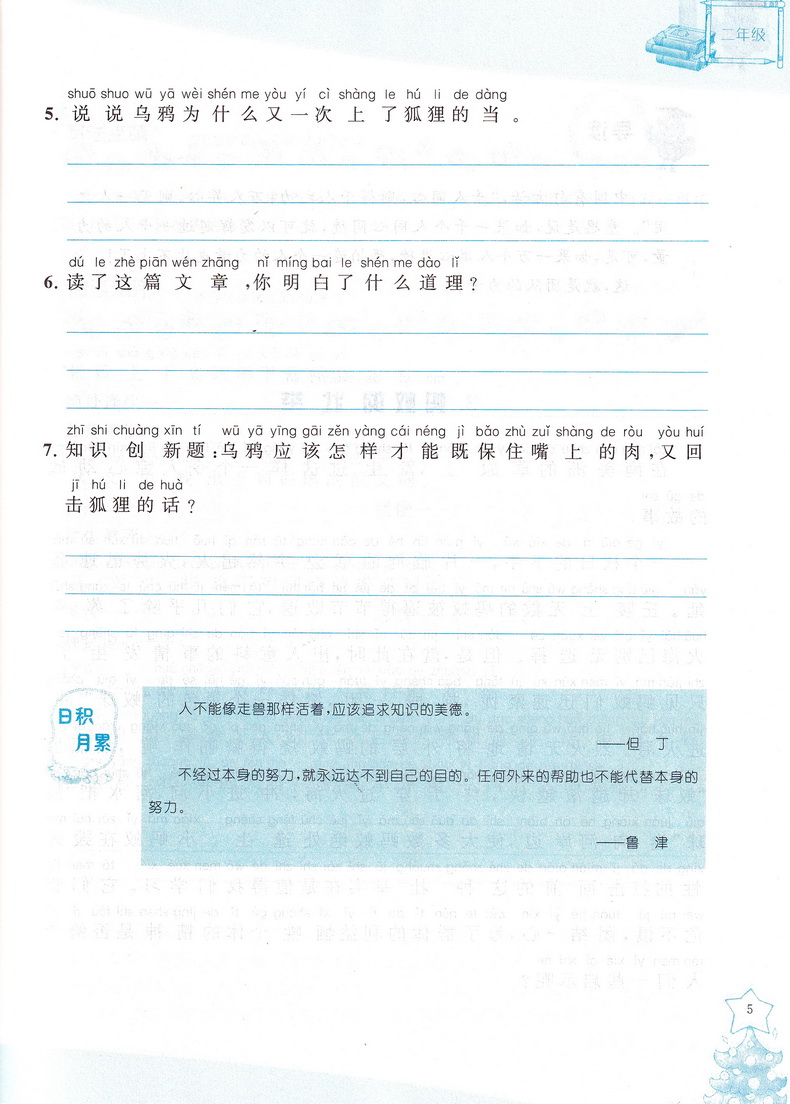 二年级
shuō shuo wū yā wèi shén me yòu yí cì shàng le hú li de dàng
5. 说说乌鸦为什么又一次上了狐狸的当。
dú le zhè piān wén zhāng nǐ míng bai le shén me dào lǐ
6. 读了这篇文章,你明白了什么道理?
zhī shi chuàng xīn tí wū yā yīng gāi zěn yàng cái néng jì bǎo zhù zuǐ shàng de ròu yòu huí
7. 知识创新题:乌鸦应该怎样才能既保住嘴上的肉,又回
jī hú li de huà
击狐狸的话?
日积
月累
人不能像走兽那样活着,应该追求知识的美德。
——但 丁
不经过本身的努力,就永远达不到自己的目的。任何外来的帮助也不能代替本身的
努力。
——鲁 津
5